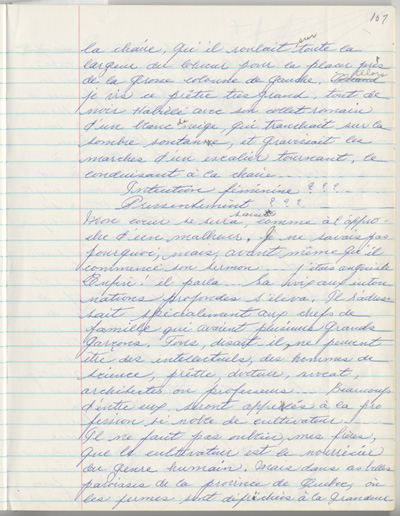 107
la chaire, qu'il roulait sur toute la
largeur du choeur pour la placer près
de la grosse colonne de gauche. Alors
je vis ce prêtre très grand, tout de
noir habillé avec son collet romain
d'un blanc de neige, qui tranchait sur la
sombre soutane, et gravissait les
marches d'un escalier tournant, le
conduisant à la chaire....
Intuition féminine ? ? ? ...
Pressentiment ? ? ? ...
Mon coeur se serra, comme à l'appro-
che d'un malheur. Je ne savais pas
pourquoi, mais, avant même qu'il
commence son sermon.... j'étais angoissée
Enfin! il parla... Sa voix aux into-
nations profondes s'éleva. Il s'adres-
sait spécialement aux chefs de
famille qui avaient plusieurs grands
garçons. Tous, disait-il, ne peuvent
être des intellectuels, des hommes de
science, prêtre, docteur, avocat,
architectes ou professeurs.... Beaucoup
d'entre eux, seront appelés à la pro
fession si noble de cultivateur...
Il ne faut pas oublier, mes frères,
que le cultivateur est le nourricier
du genre humain. Mais dans nos belles
paroisses de la province de Québec, où
les fermes sont défrichées à la grandeur